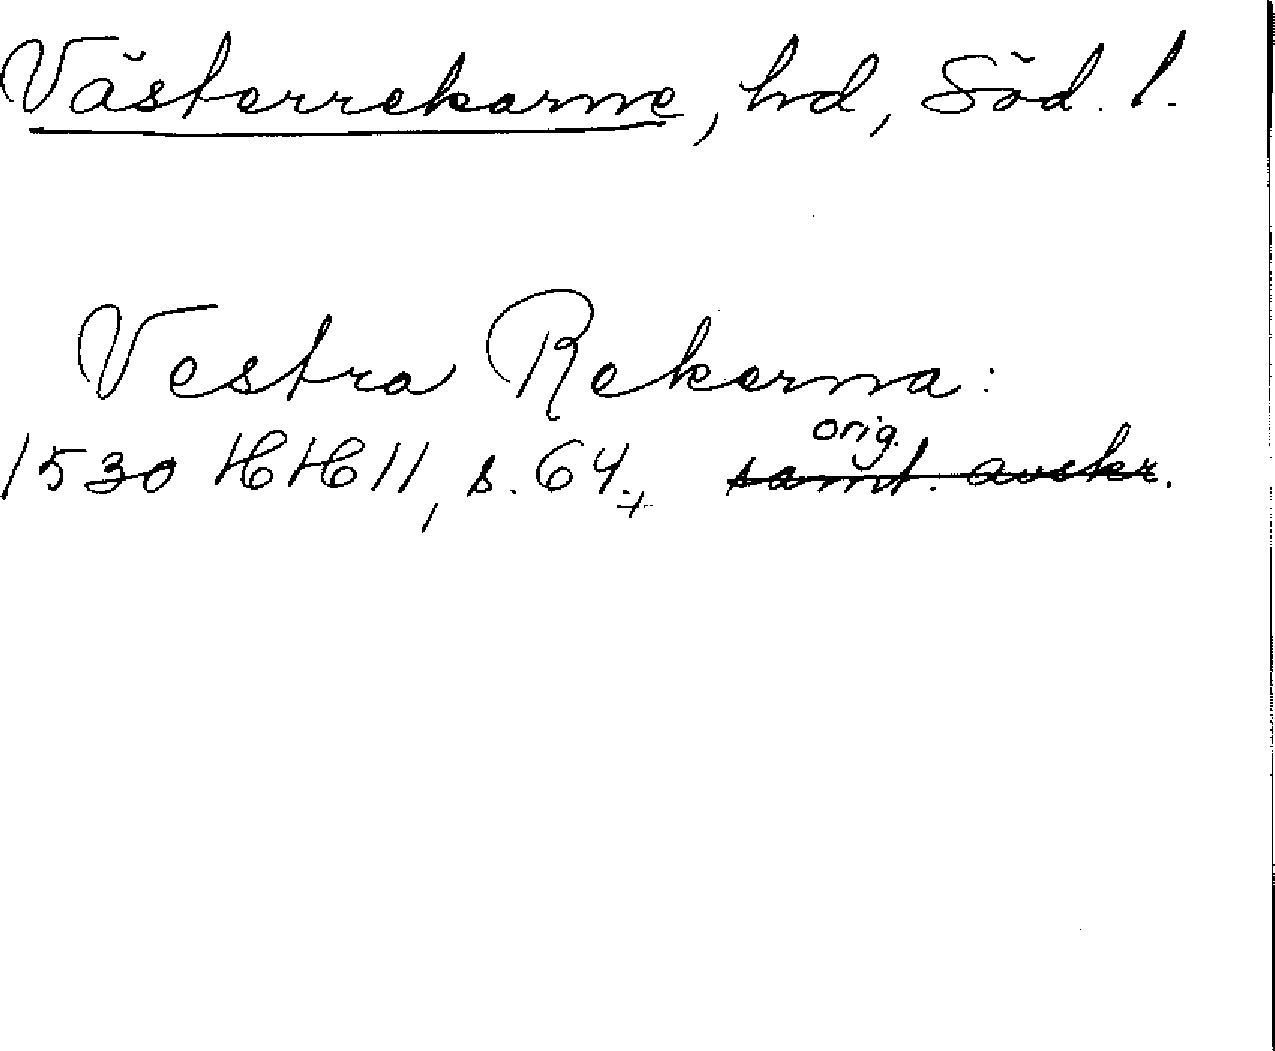 Västerrekarne, hd, Söd. l.
Vestra Rekerna:
orig.
1530 HH II, s. 64. samt. avskr.